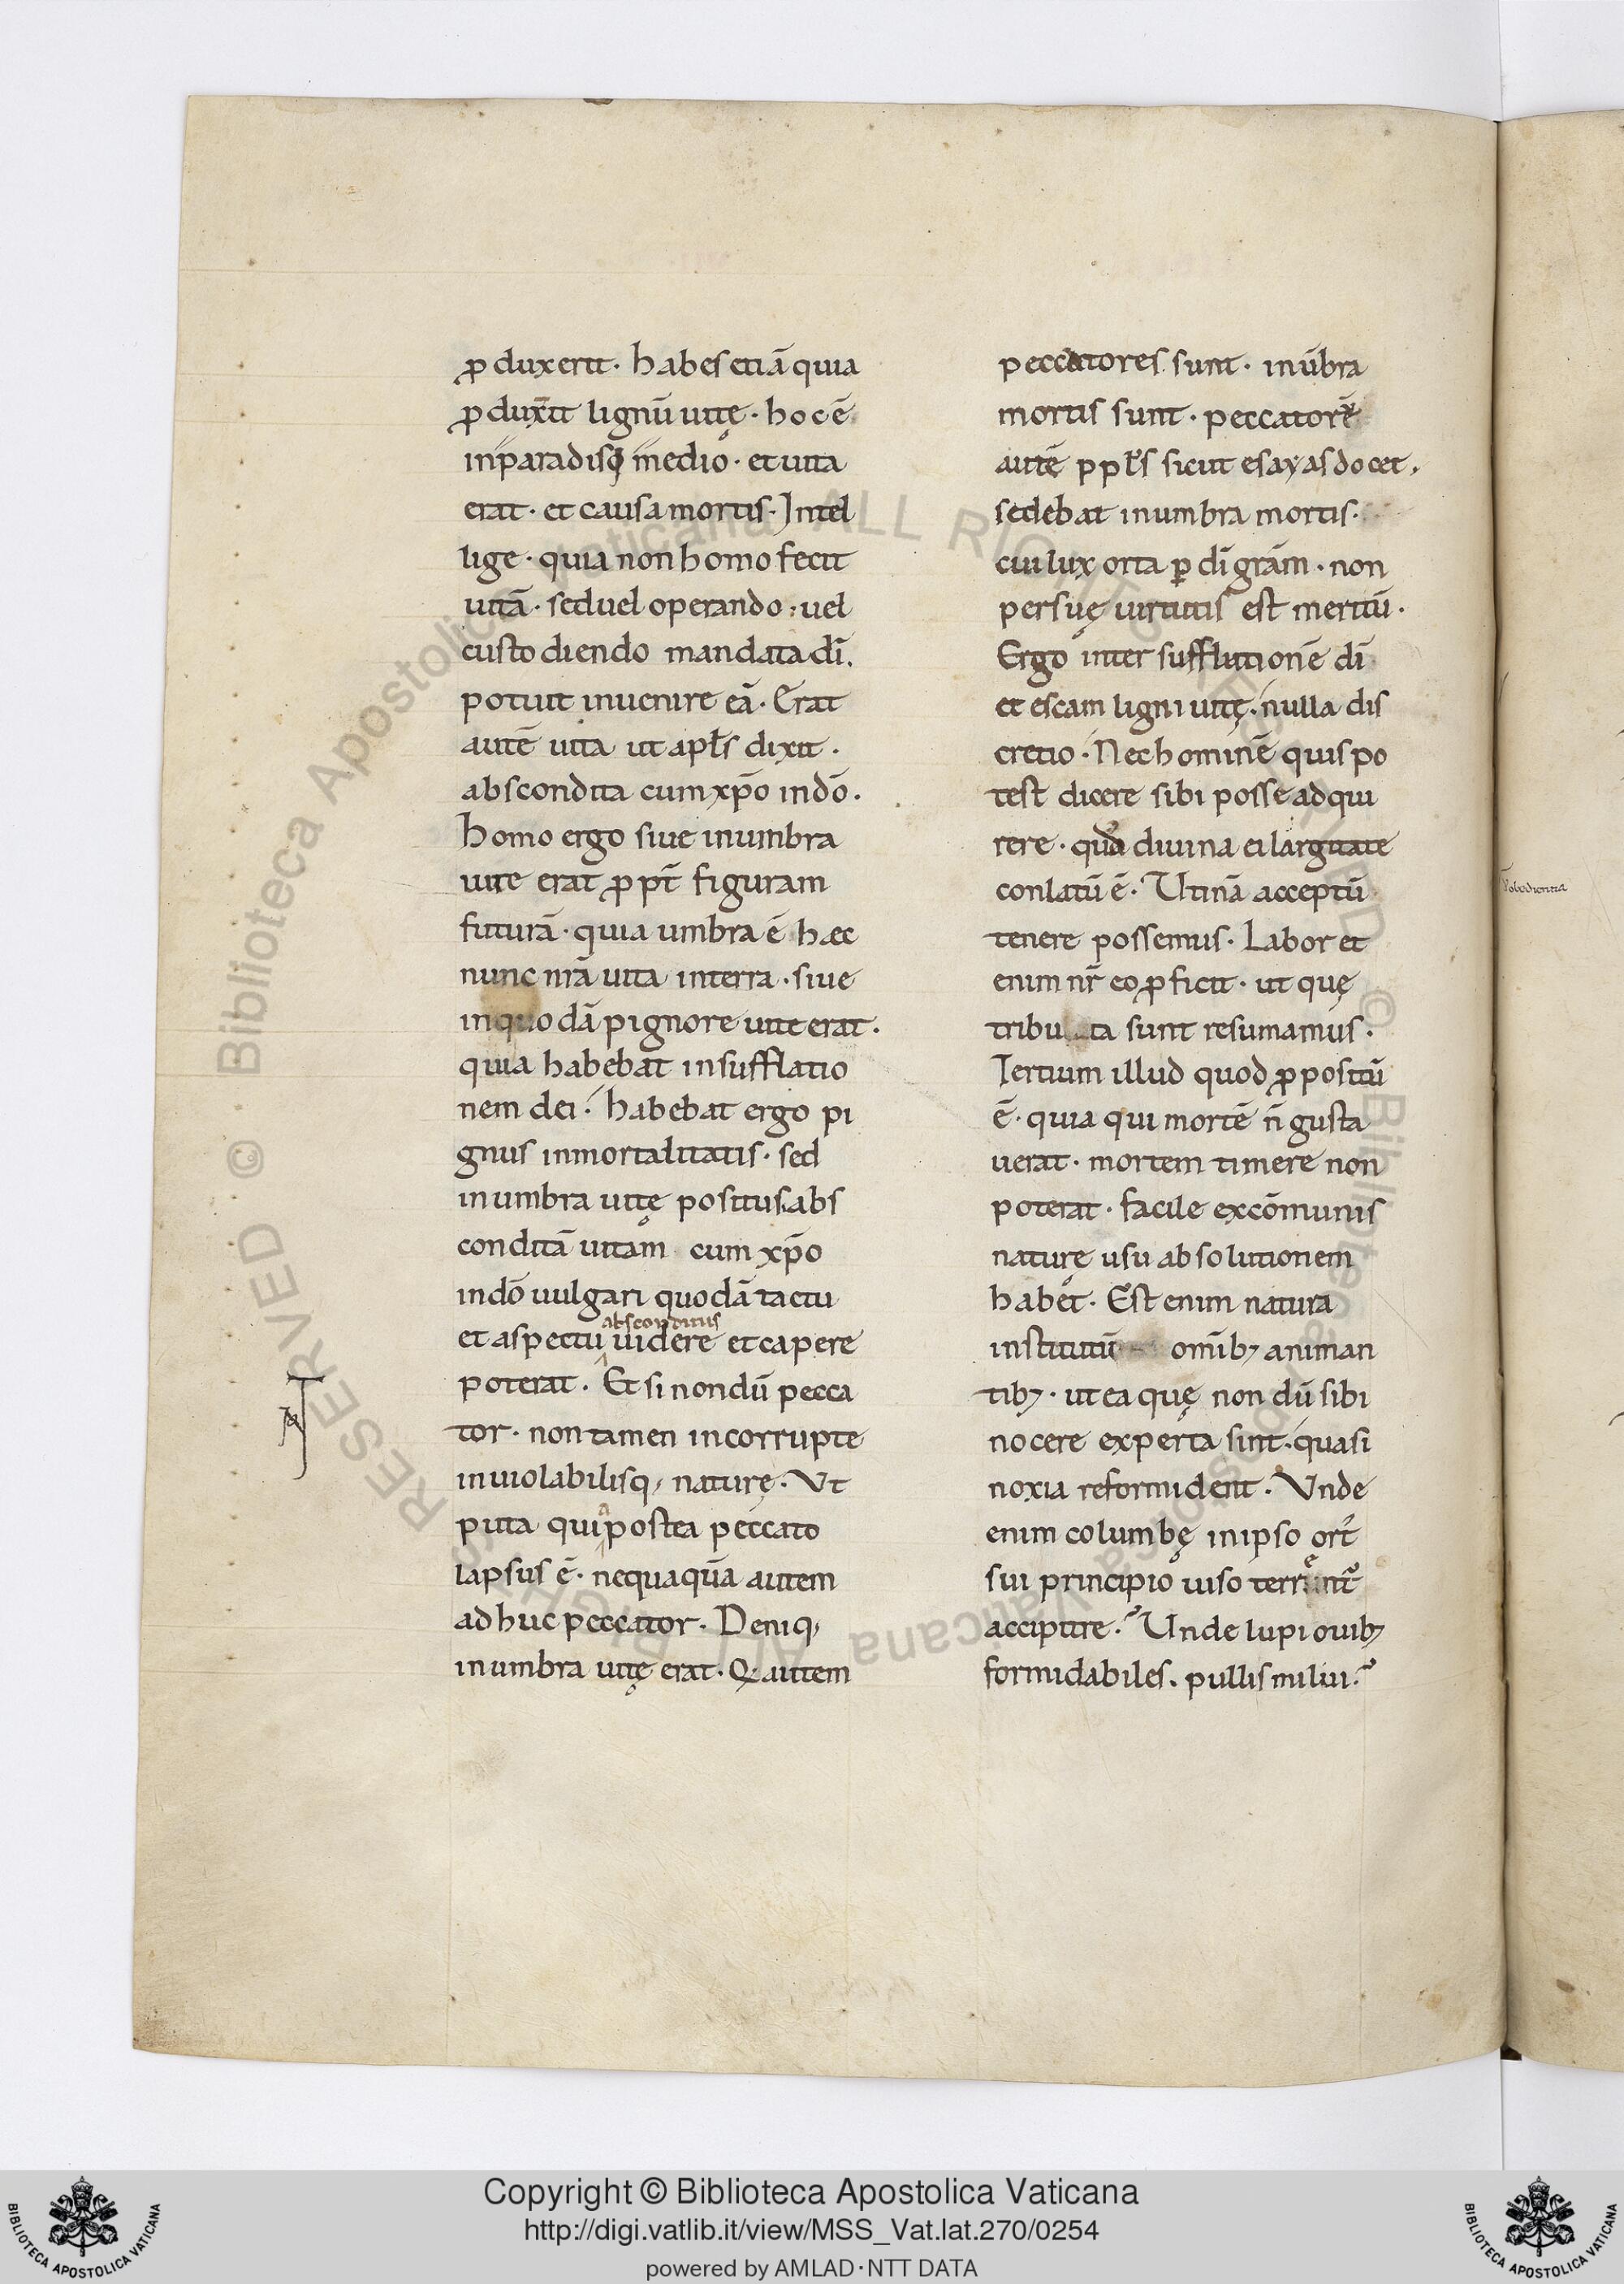 ꝓduxerit. habes etiā quia
ꝓduxit lignū uitę. hoc ē
in paradiso medio. et uita
erat. et causa mortis. Intel
lige. quia non homo fecit
uitā. sed uel operando. uel
custodiendo mandata dī.
potuit inuenire eā. Erat
autē uita ut apl̄s dixit.
abscondita cum xp̄o in dō.
homo ergo siue in umbra
uite erat ꝓpt̄ figuram
futurā. quia umbra ē hæc
nunc nrā uita in terra. siue
in quodā pignore uite erat.
quia habebat insufflatio
nem dei. habebat ergo pi
gnus inmortalitatis. sed
in umbra uitę positus. abs
conditā uitam cum xp̄o
in dō uulgari quodā tactu
absconditus
et aspectu uidere et capere
poterat. Et si nondū pecca
tor. non tamen incorrupte
inuiolabilisq; naturę. Ut
puta qui postea peccato
lapsus ē. nequaquā autem
adhuc peccator. Deniq;
in umbra uitę erat. Q autem
peccatores sunt. in ūbra
mortis sunt. peccatorē
autē ppl̄s sicut esayas docet.
sedebat in umbra mortis.
cui lux orta ꝑ dī grām. non
per suę uirtutis est meritū.
Ergo inter sufflationē dī
et escam ligni uitę. nulla dis
cretio. Nec hominē quis po
test dicere sibi posse adqui
rere. quod diuina ei largitate
conlatū ē. Utinā acceptū
tenere possemus. Labor et
enim nr̄ eo ꝓficit. ut quę
tributa sunt resumamus.
Tertium illud quod ꝓpositū
ē. quia qui mortē n̄ gusta
uerat. mortem timere non
poterat. facile ex cōmunis
naturę usu absolutionem
habet. Est enim natura
institutū omīb; animan
tib;. ut ea quę nondū sibi
nocere experta sint. quasi
noxia reformident. Unde
enim columbę in ipso ort
sui principio uiso terrent
accipitre. Unde lupi ouib;
formidabiles. pullis milui.
obedientia
Copyright © Biblioteca Apostolica Vaticana
http://digi.vatlib.it/view/MSS_Vat.lat.270/0254
powered by AMLAD·NTT DATA